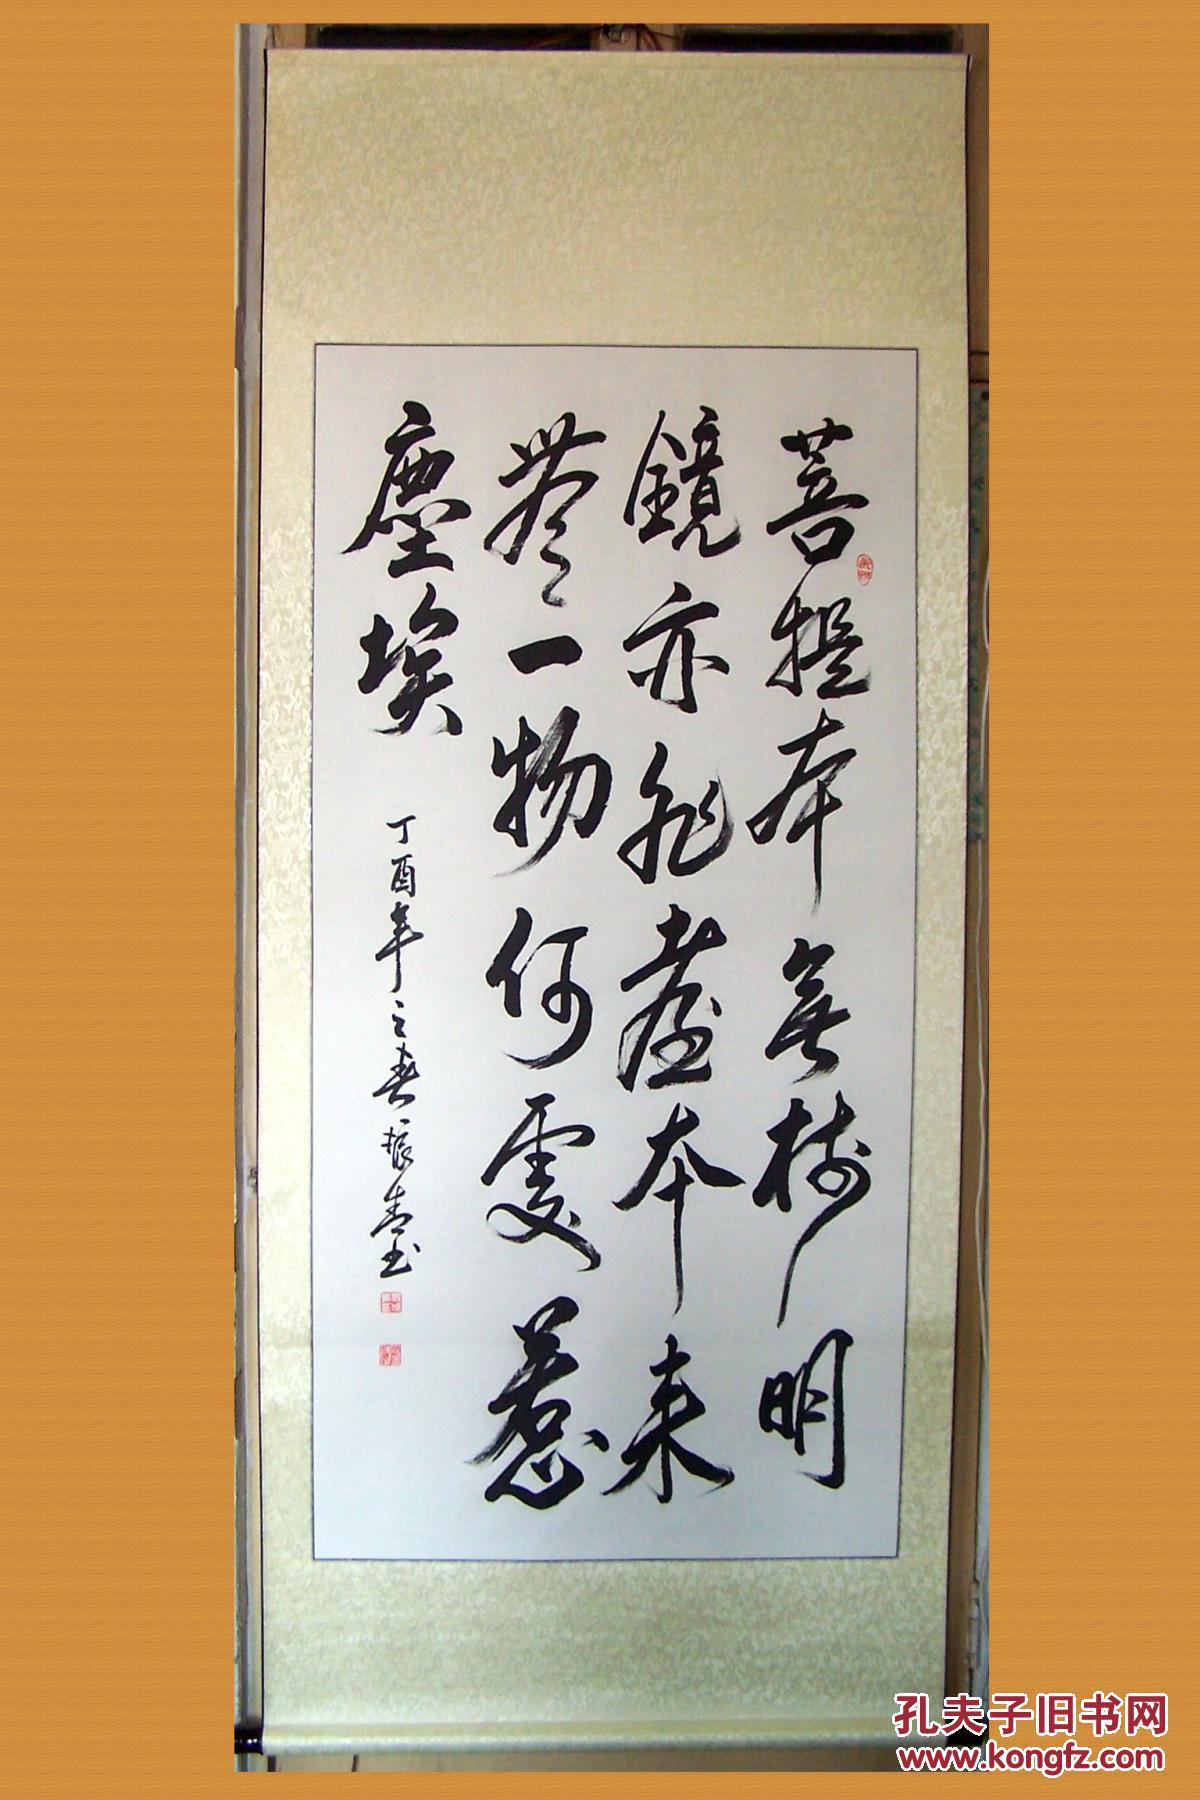 菩提本無樹明
鏡亦非臺本来
無一物何處惹
塵埃
丁酉年之春振
孔夫子旧书网
www.kongfz.com